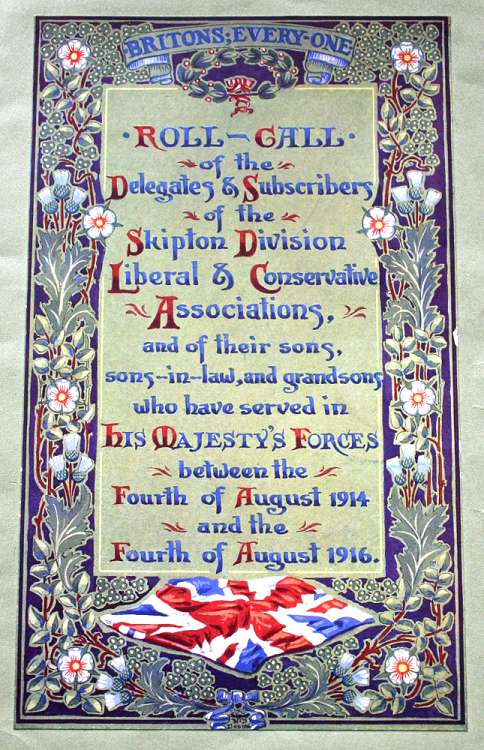 BRITONS; EVERY-ONE
·ROLL-CALL·
of the
Delegates & Subscribers
of the
Skipton Division
Liberal & Conservative
Associations,
and of their sons,
sons-in-law, and grandsons
who have served in
HIS MAJESTY'S FORCES
between the
Fourth of August 1914
and the
Fourth of August 1916.